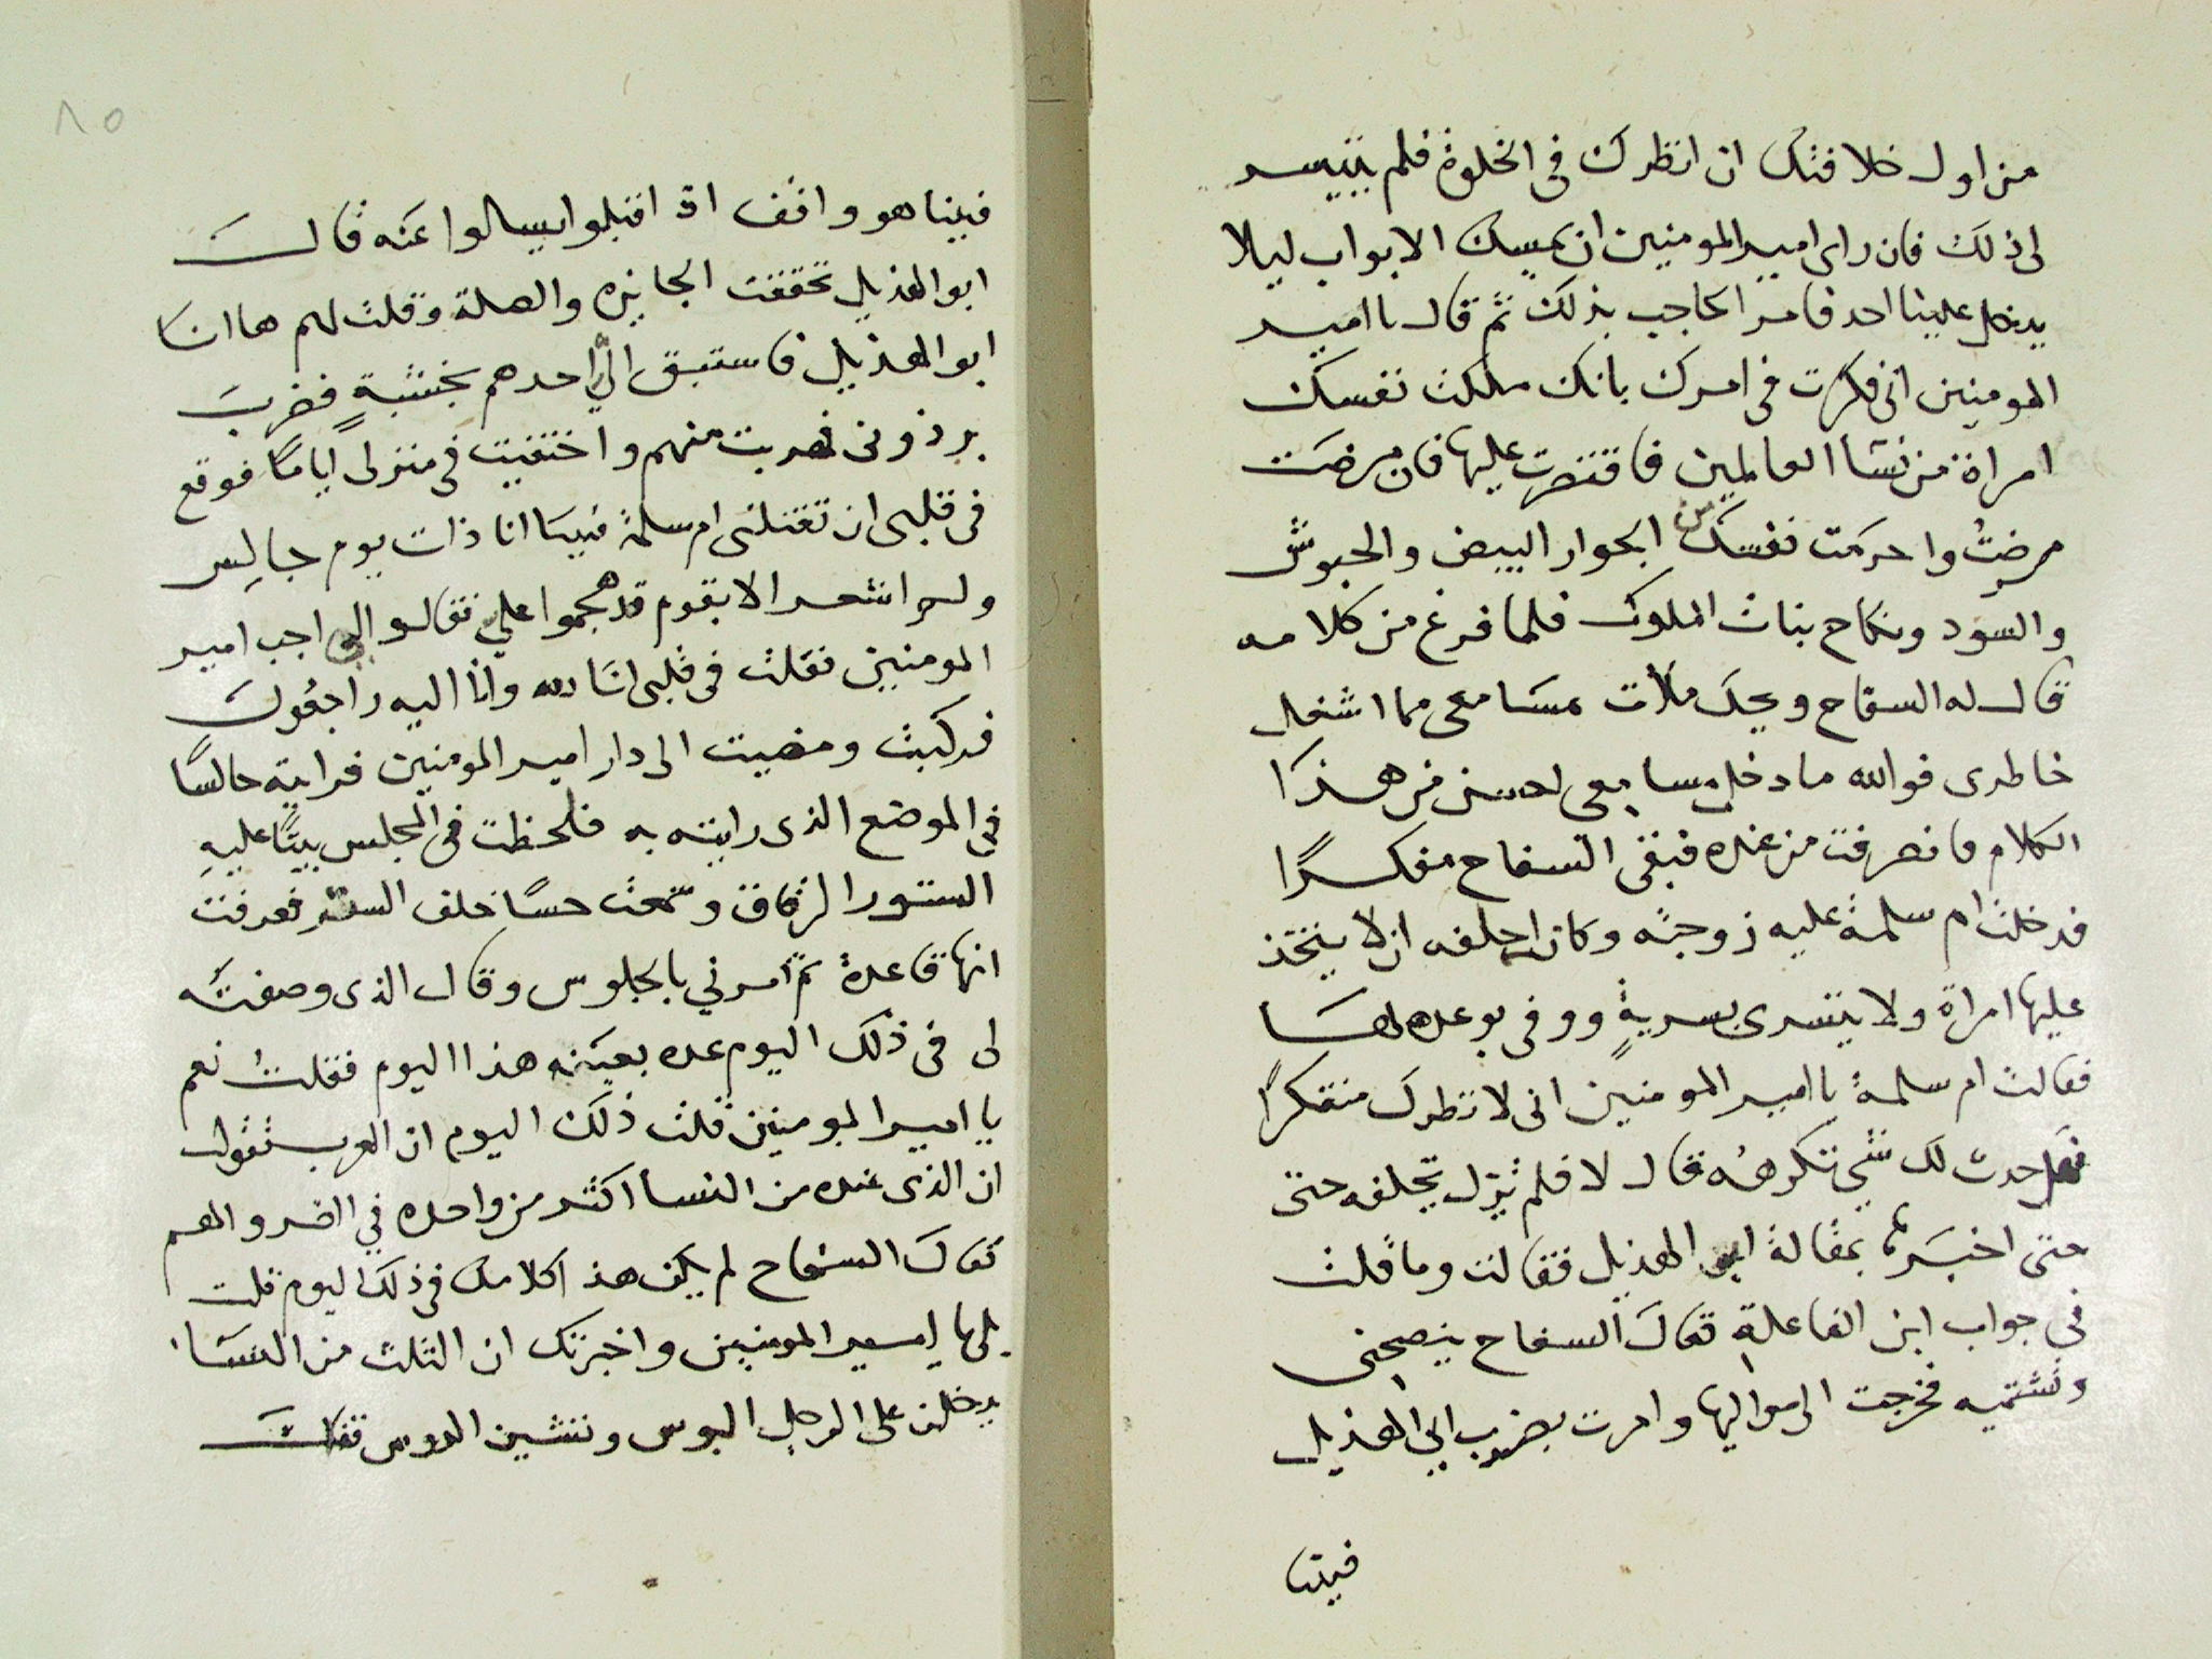 من اول خلافتك ان انظرك فى الخلوة فلم يتيسر
لى ذلك فان راى امير المومنين ان يمسك الابواب ليلا
يدخل علينا احد فامر الحاجب بذلك ثم قال يا امير
المومنين انى فكرت فى امرك بانك ملكت نفسك
امراة من نسا العالمين فاقتصرت عليها فان مرضت
مرضتُ واحرمت نفسك من الجوار البيض والحبوش
والسود ونكاح بنات الملوك فلما فرغ من كلامه
قال له السفاح ويحك ملات مسامعى مما اشغل
خاطرى فوالله ما دخل مسامعى احسن من هذا
الكلام فانصرفت من عنده فبقى السفاح مفكرًا
فدخلت ام سلمة عليه زوجته وكان احلفه ان لا يتخذ
عليها امراة ولا يتسرى بسريةٍ ووفى بوعده لها
فقالت ام سلمة يا امير المومنين انى لا نظرك متفكرًا
فهل حدث لك شي تكرهه قال لا فلم تزل تحلفه حتى
حتى اخبرها بمقالة ابو الهذيل فقالت وما قلت
فى جواب ابن الفاعلة فقال السفاح ينصحنى
وتشتميه فخرجت الى مواليها وامرت بضرب ابى الهذيل
فبينا
٨٥
فبينا هو واقف اذ اقبلوا يسالوا عنه قال
ابو الهذيل تحققت الجايزه والصلة وقلت لهم ها انا
ابو الهذيل فاستبق اليّ احدهم بخشبةٍ فضرب
برذونى فهربت منهم واختفيت فى منزلى ايامًا فوقع
فى قلبى ان تقتلنى ام سلمة فبينا انا ذات يوم جالس
ولم اشعر الا بقوم قد هجموا علي فقالوا لى اجب امير
المومنين فقلت فى قلبى انا لله وانا اليه راجعون
فركبت ومضيت الى دار امير المومنين فرايته جالسًا
في الموضع الذى رايته به فلحظت فى المجلس بيتًا عليه
الستور الرقاق وسمعت حسًا خلف الستر فعرفت
انها قاعدة ثم امرني بالجلوس وقال الذى وصفته
لى فى ذلك اليوم عده بعينه هذا اليوم فقلت نعم
يا امير المومنين قلت ذلك اليوم ان العرب تقول
ان الذى عنده من النسا اكثر من واحده في الضر والهم
فقال السفاح لم يكن هذا كلامك فى ذلك اليوم قلت
بلى يا امير المومنين واخبرتك ان الثلث من النسا
يدخلن على الرجل البوس وتشين الروس فقال